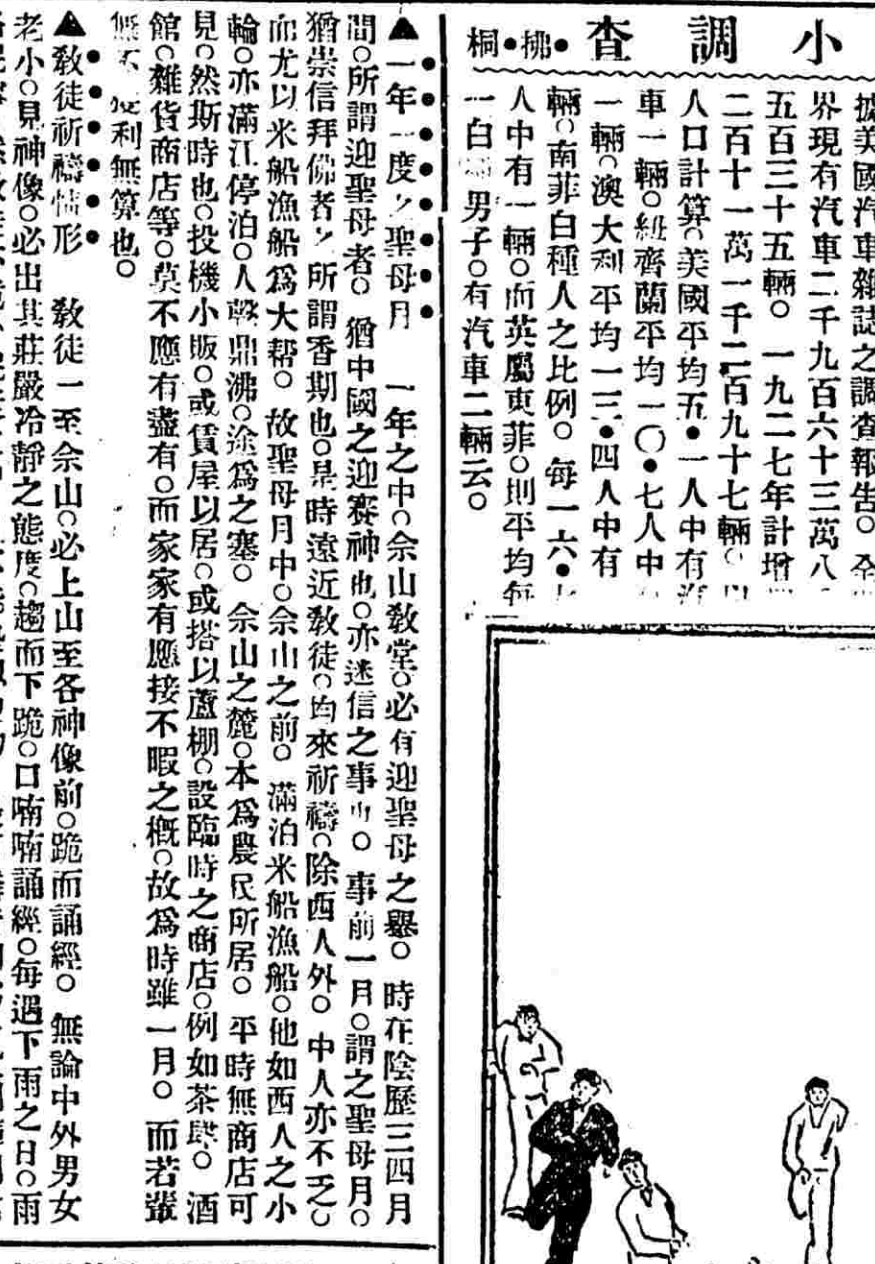 小調查
拂桐
據美國汽車雜誌之調查報告。全
界現有汽車二千九百六十三萬八
五百三十五輛。一九二七年計增
二百十一萬一千二百九十七輛。
人口計算。美國平均五•一人中有汽
車一輛。紐齊蘭平均一〇•七人中
一輛。澳大利平均一三•四人中有
輛。南菲白種人之比例。每一六•
人中有一輛。而英屬東菲。則平均每
一白 男子。有汽車二輛云。
▲一年一度之聖母月　一年之中。佘山敎堂。必有迎聖母之舉。時在陰歷三四月
間。所謂迎聖母者。猶中國之迎賽神也。亦迷信之事也。事前一月。謂之聖母月。
猶崇信拜佛者之所謂香期也。是時遠近敎徒。均來祈禱。除西人外。中人亦不乏。
而尤以米船漁船爲大帮。故聖母月中。佘山之前。滿泊米船漁船。他如西人之小
輪。亦滿江停泊。人聲鼎沸。途爲之塞。佘山之麓。本爲農民所居。平時無商店可
見。然斯時也。投機小販。或賃屋以居。或搭以蘆棚。設臨時之商店。例如茶肆。酒
館。雜貨商店等。莫不應有盡有。而家家有應接不暇之概。故爲時雖一月。而若輩
無不獲利無算也。
▲敎徒祈禱情形　敎徒一至佘山。必上山至各神像前。跪而誦經。無論中外男女
老小。見神像。必出其莊嚴冷靜之態度。趨而下跪。口喃喃誦經。每遇下雨之日。雨